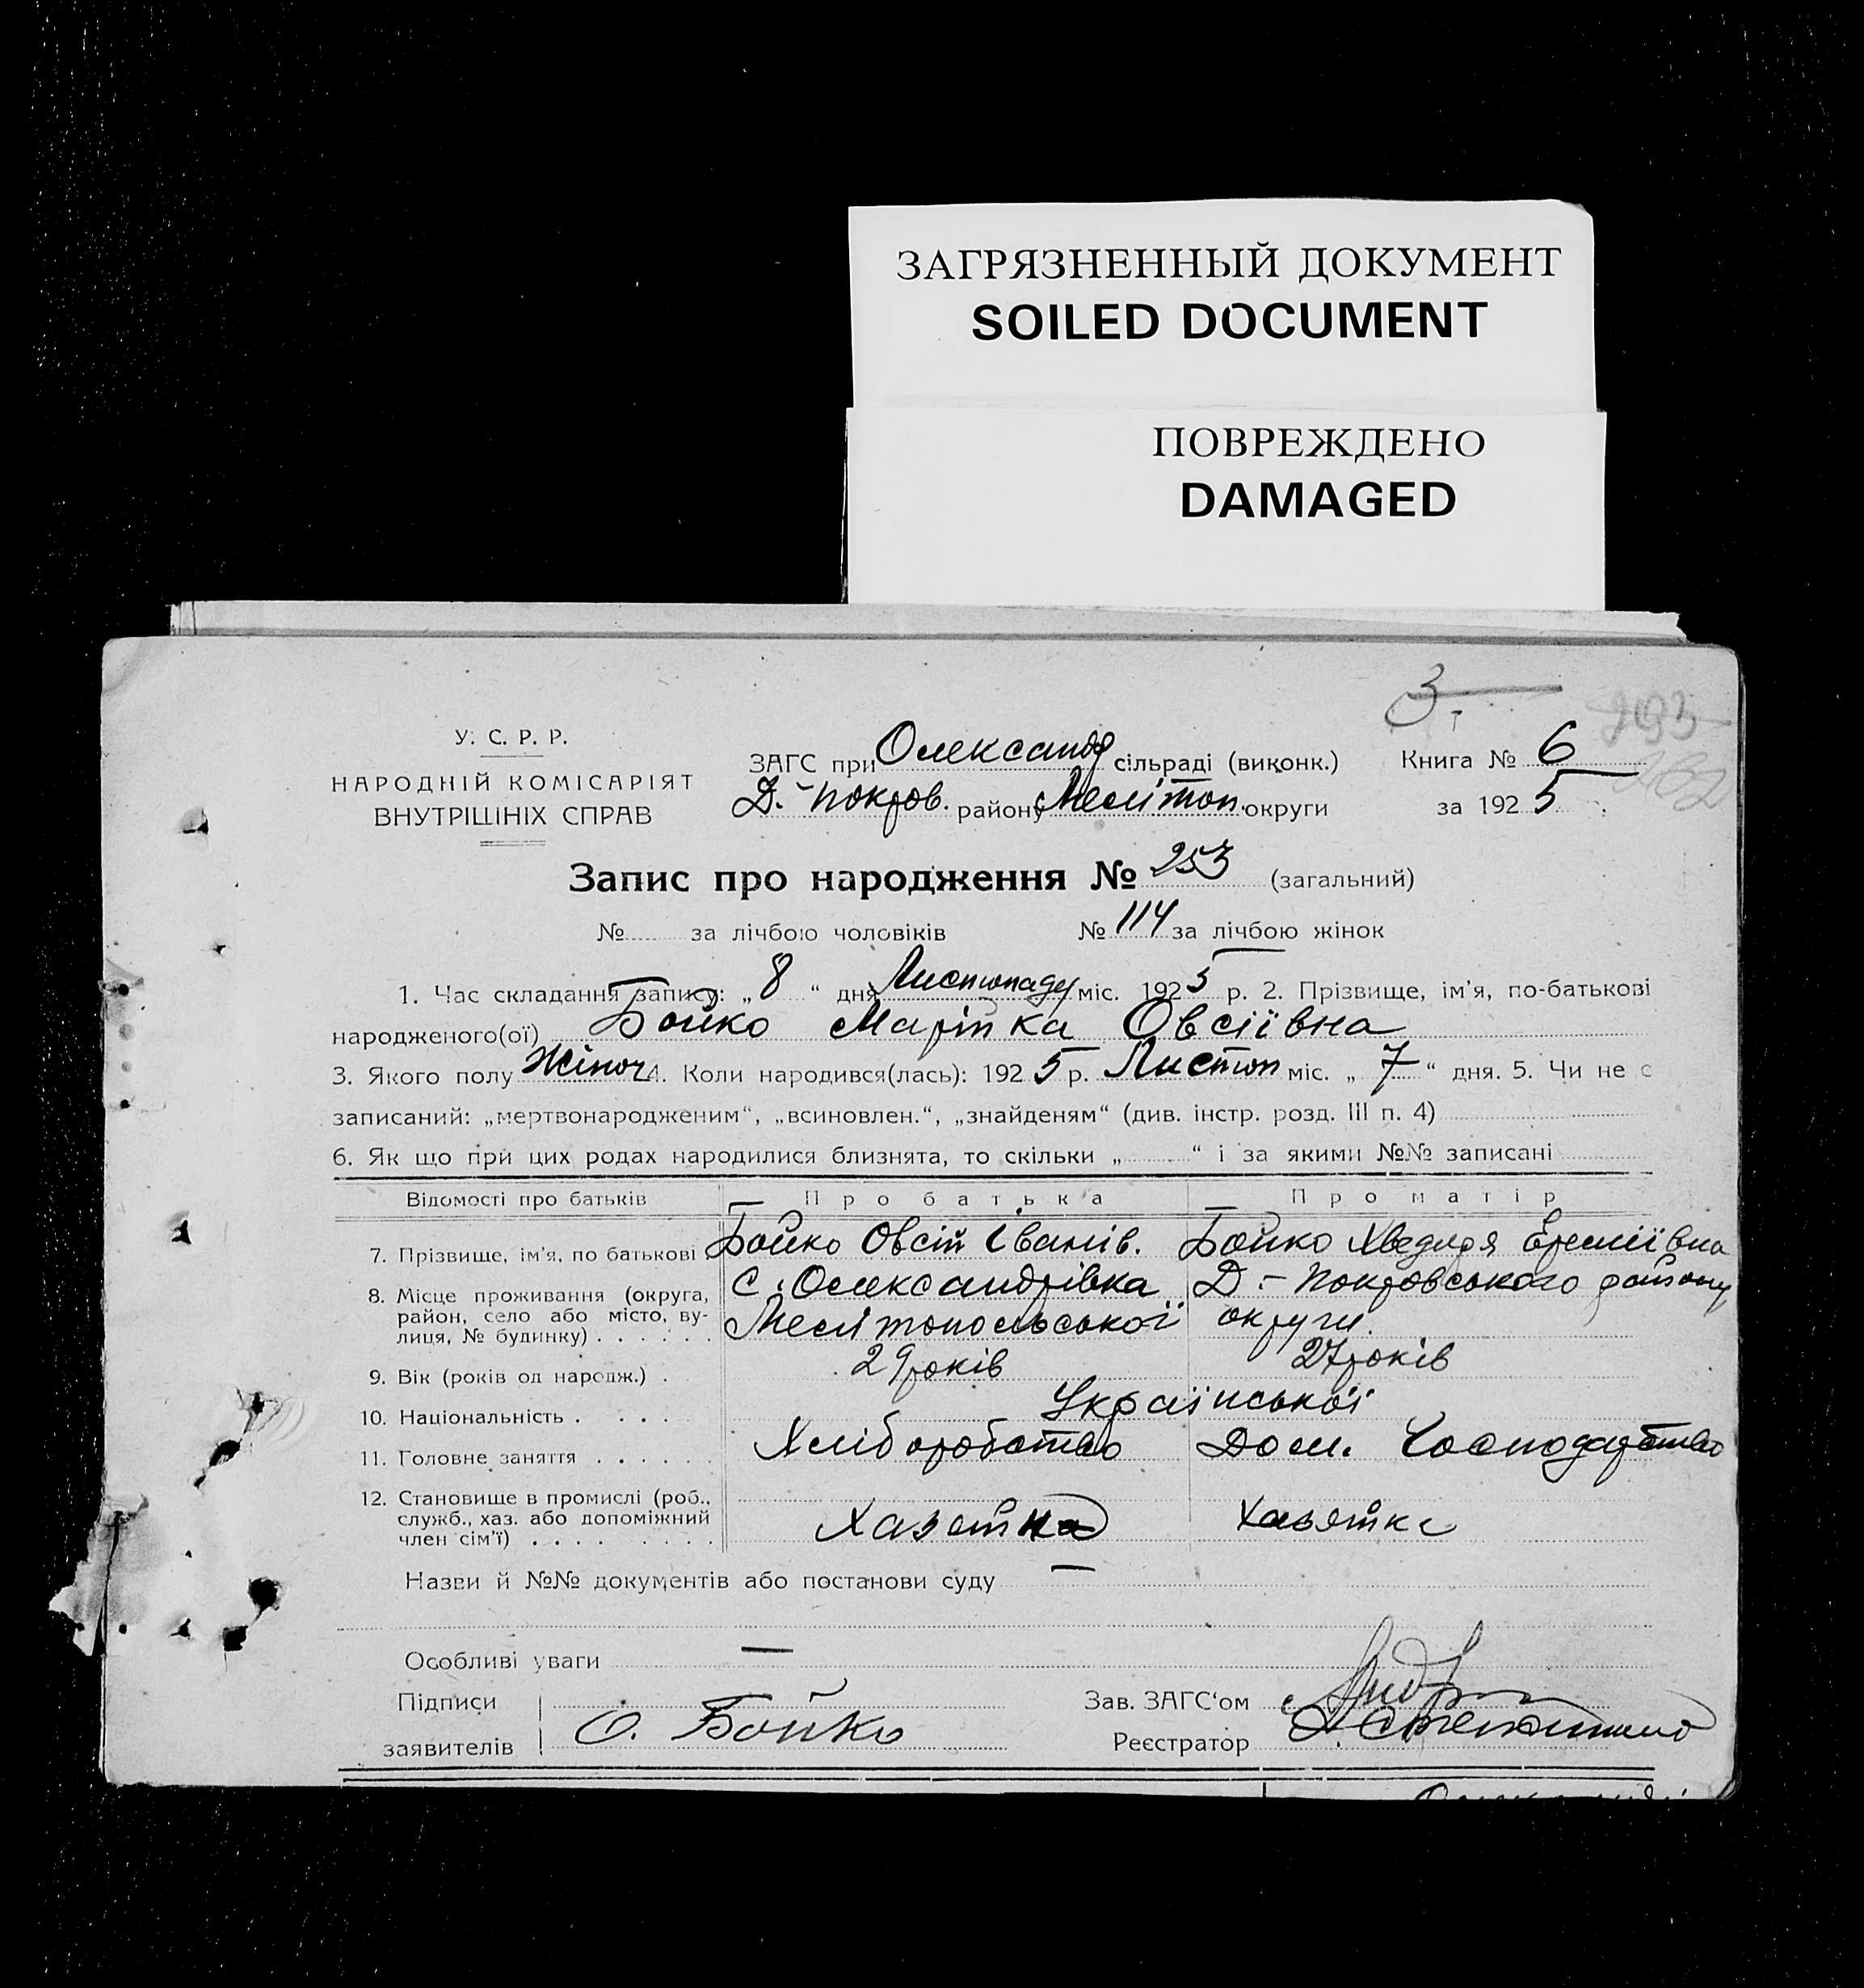 ЗАГРЯЗНЕННЫЙ ДОКУМЕНТ
SOILED DOCUMENT
ПОВРЕЖДЕНО
DAMAGED
3
293
262
У. С. Р. Р.
НАРОДНІЙ КОМІСАРІЯТ
ВНУТРІШНІХ СПРАВ
ЗАГС при Олександр сільраді (виконк.) Книга № 6
Д.-Покров. району Мелітоп. округи за 1925
Запис про народження № 253 (загальний)
№ за лічбою чоловіків № 114 за лічбою жінок
1. Час складання запису: „8“ дня Листопаду міс. 1925 р. 2. Прізвище, ім'я, по-батькові
народженого(ої) Бойко Марійка Овсіївна
3. Якого полу Жіноч 4. Коли народився(лась): 1925 р. Листоп міс. „7“ дня. 5. Чи не є
записаний: „мертвонародженим“, „всиновлен.“, „знайденям“ (див. інстр. розд. III п. 4)
6. Як що при цих родах народилися близнята, то скільки „ “ і за якими №№ записані
Відомості про батьків Про батька Про матір
7. Прізвище, ім'я, по батькові Бойко Овсій Іванів. Бойко Хведиря Ереміївна
8. Місце проживання (округа, С. Олександрівка Д-Покровського району
район, село або місто, ву-
лиця, № будинку) Мелітопольської округи.
9. Вік (років од народж.) 29 років 27 років
10. Національність Української
11. Головне заняття Хліборобство Дом. Господарство
12. Становище в промислі (роб.,
служб., хаз. або допоміжний Хазяйка
член сім'ї)
Назви й №№ документів або постанови суду —
Особливі уваги —
Підписи Зав. ЗАГС'ом
заявителів О. Бойко Реєстратор